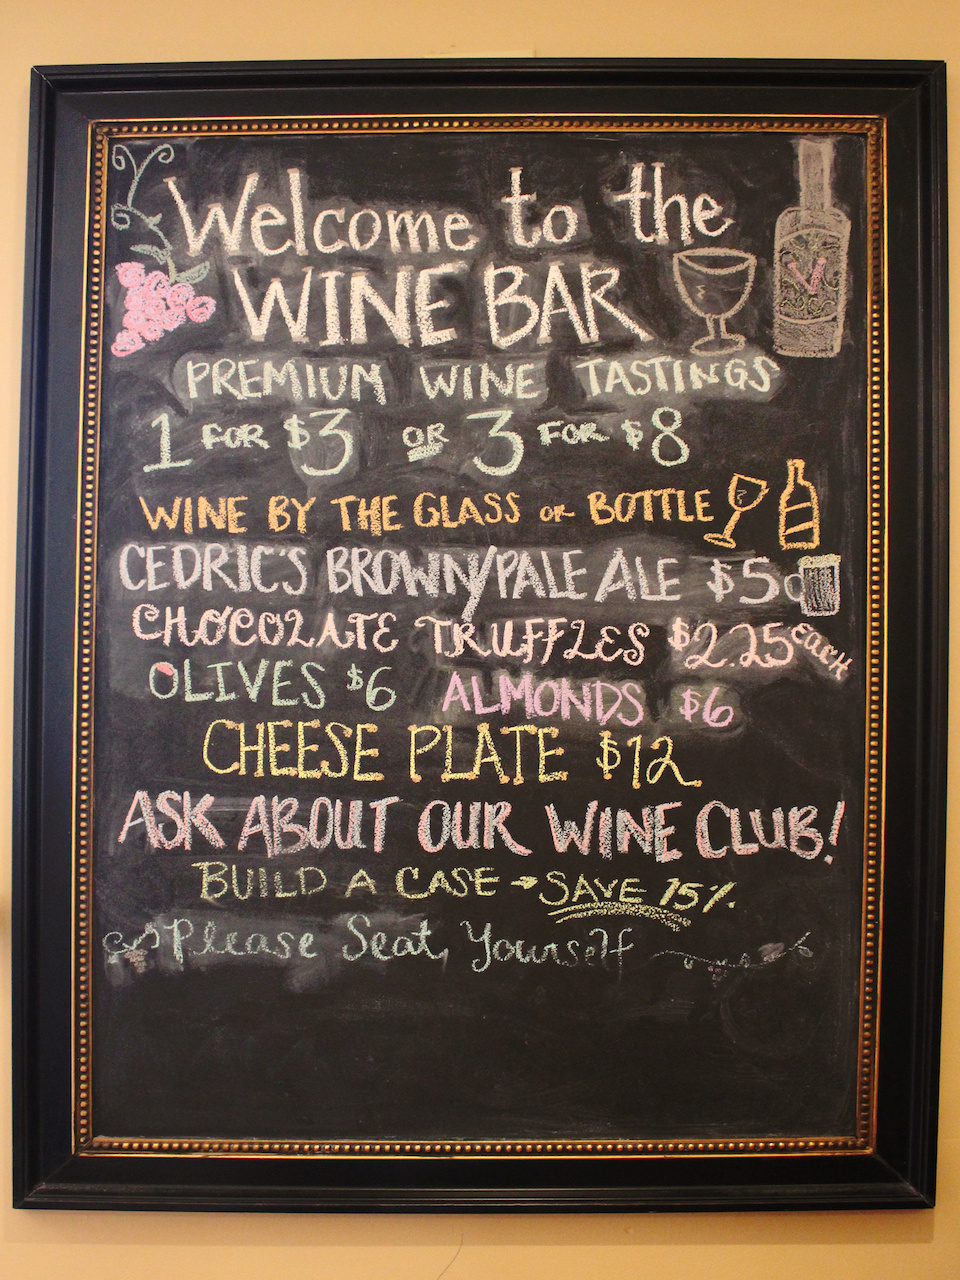 Welcome to the
WINE BAR
V
PREMIUM WINE TASTINGS
1 FOR $3 OR 3 FOR $8
WINE BY THE GLASS OR BOTTLE
CEDRIC'S BROWN/PALE ALE $5
CHOCOLATE TRUFFLES $2.25 EACH
OLIVES $6 ALMONDS $6
CHEESE PLATE $12
ASK ABOUT OUR WINE CLUB!
BUILD A CASE → SAVE 15%
Please Seat Yourself